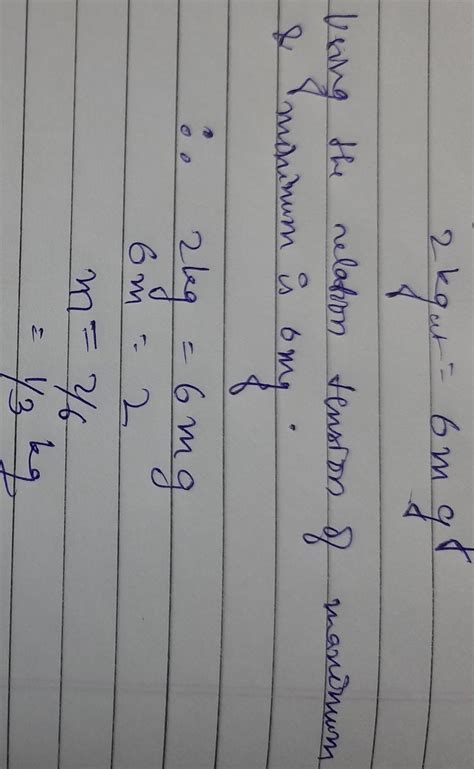 2 kg wt = 6 m g
Using the relation tension of maximum
& minimum is 6 mg.
∴ 2 kg = 6 mg
6m = 2
m = 2/6
= 1/3 kg